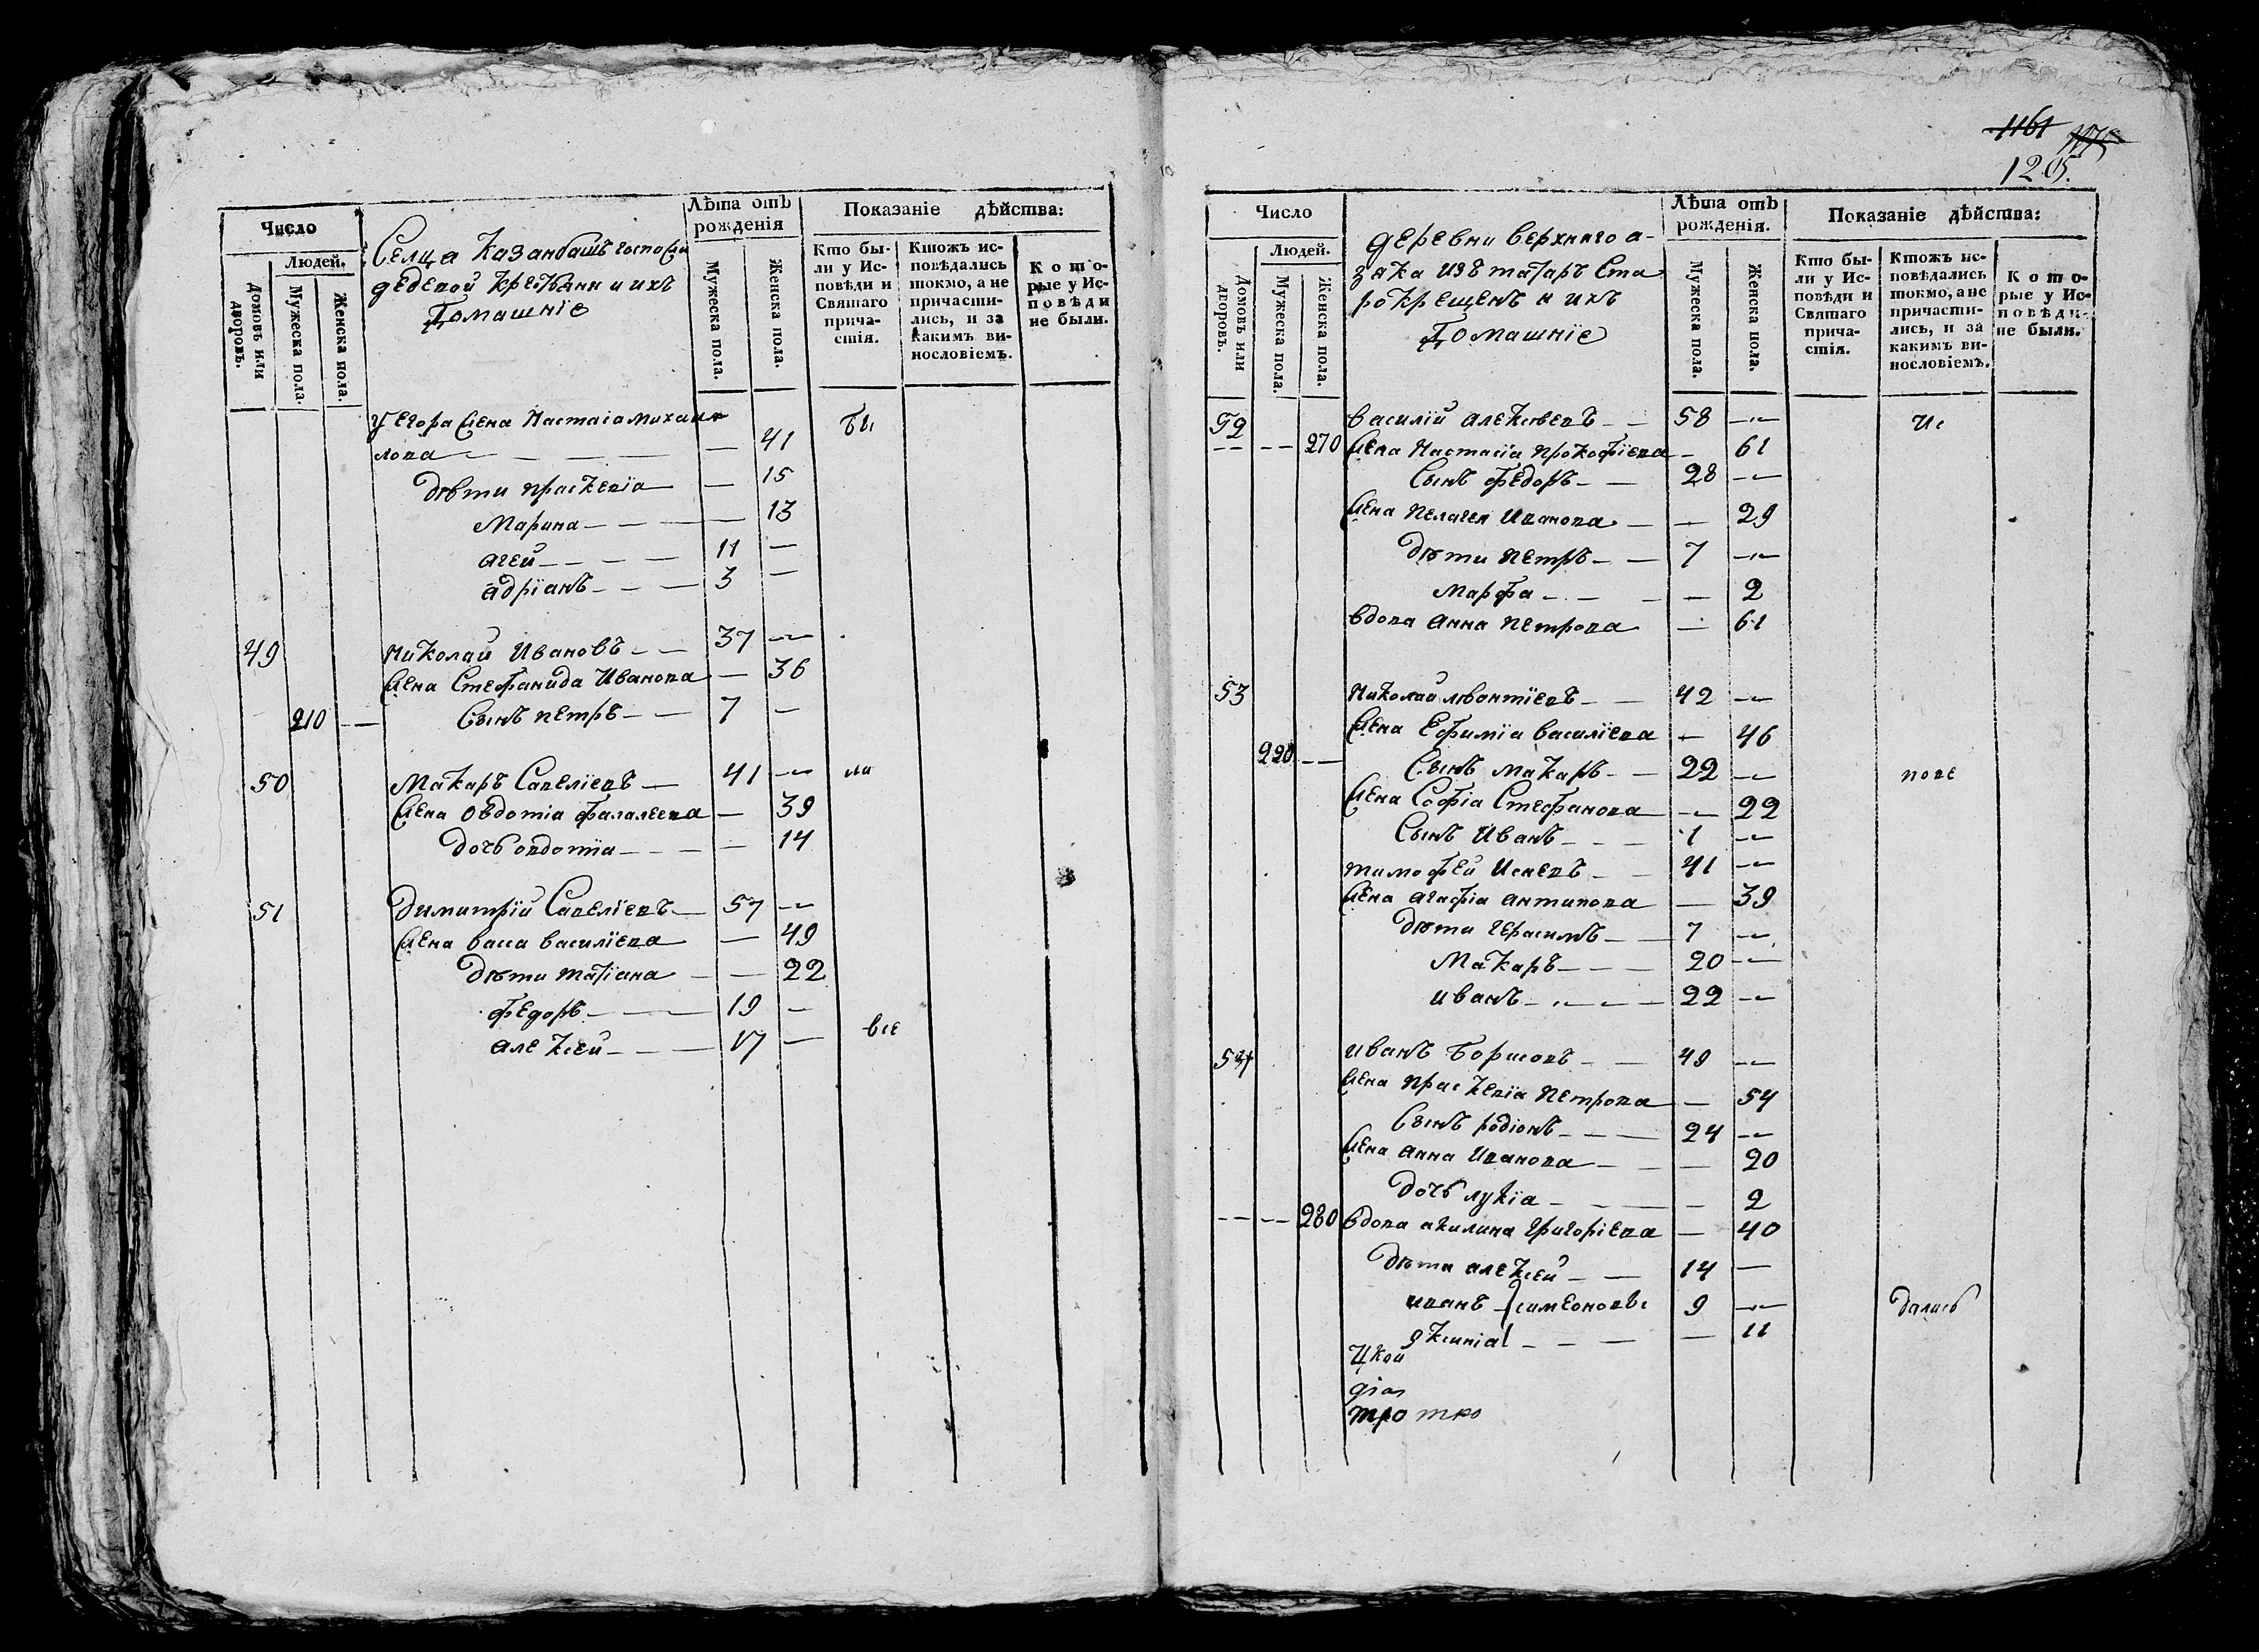 Число
Людей.
Домовъ или дворовъ.
Мужеска пола.
Женска пола.
Селца Казанбашъ госпожи
дедевой крестьяни и ихъ
Домашніе
Лѣта отъ
рожденія
Мужеска пола.
Женска пола.
Показаніе дѣйства:
Кто бы-
ли у Ис-
повѣди и
Святаго
прича-
стія.
Ктожъ ис-
повѣдались
токмо, а не
причасти-
лись, и за
какимъ ви-
нословіемъ.
К о т о-
рые у Ис-
п о в ѣ д и
не были.
У Егора жена Настасіа михаи
лова — — — — — 41 бы
дѣти праскевіа — 15
Марина — — — — 13
агей — — — — 11 —
адріанъ — — — 3 —
49 Николай Ивановъ — — 37 —
жена Стефанида Иванова — 36
210 — сынъ петръ — — 7 —
50 Макаръ Савеліевъ — 41 — ли
жена Овдотіа фалалеева — 39
дочь овдотїа — — — — 14
51 Димитрїй Савелїевъ — 57 —
жена васса василїева — 49
дѣти татїана — — 22
федоръ — — — 19 —
алексѣй — — — 17 — все
1161 1175
1205.
Число
Людей.
Домовъ или дворовъ.
Мужеска пола.
Женска пола.
деревни верхняго а-
зяка изъ татаръ Ста
рокрещенъ и ихъ
Домашнїе
Лѣта отъ
рожденія.
Мужеска пола.
Женска пола.
Показаніе дѣйства:
Кто бы-
ли у Ис-
повѣди и
Святаго
прича-
стія.
Ктожъ ис-
повѣдались
токмо, а не
причасти-
лись, и за
какимъ ви-
нословіемъ.
К о т о-
рые у Ис-
п о в ѣ д и
не были.
52 василїй алексѣевъ — — 58 — Ис
— — 270 жена Настасїа прокофїева — 61
сынъ федоръ — — 28 —
жена пелагея Иванова — — 29
дѣти петръ — — 7 —
марфа — — — — 2
вдова анна петрова — 61
53 Николай лѣонтїевъ — — 42 —
жена Ефимїа василїева — 46
220 — сынъ макаръ — — 22 — пове
жена Софїа Стефанова — 22
сынъ Иванъ — — — 1 —
тимофей Исаевъ — — 41 —
жена агафїа антипова — 39
дѣти герасимъ — — 7 —
Макаръ — — — 20 —
иванъ — — — — 22 —
54 иванъ борисовъ — — 49 —
жена праскевїа петрова — 54
сынъ родіонъ — — — 24 —
жена анна Иванова — — — 20
дочь лукїа — — — — 2
— — 280 вдова акилина григорїева — 40
дѣти алексѣй — — 14 —
иванъ симеоновы 9 — дались
ѯкинїа — — — — 11
цкой
дїа
тро тко